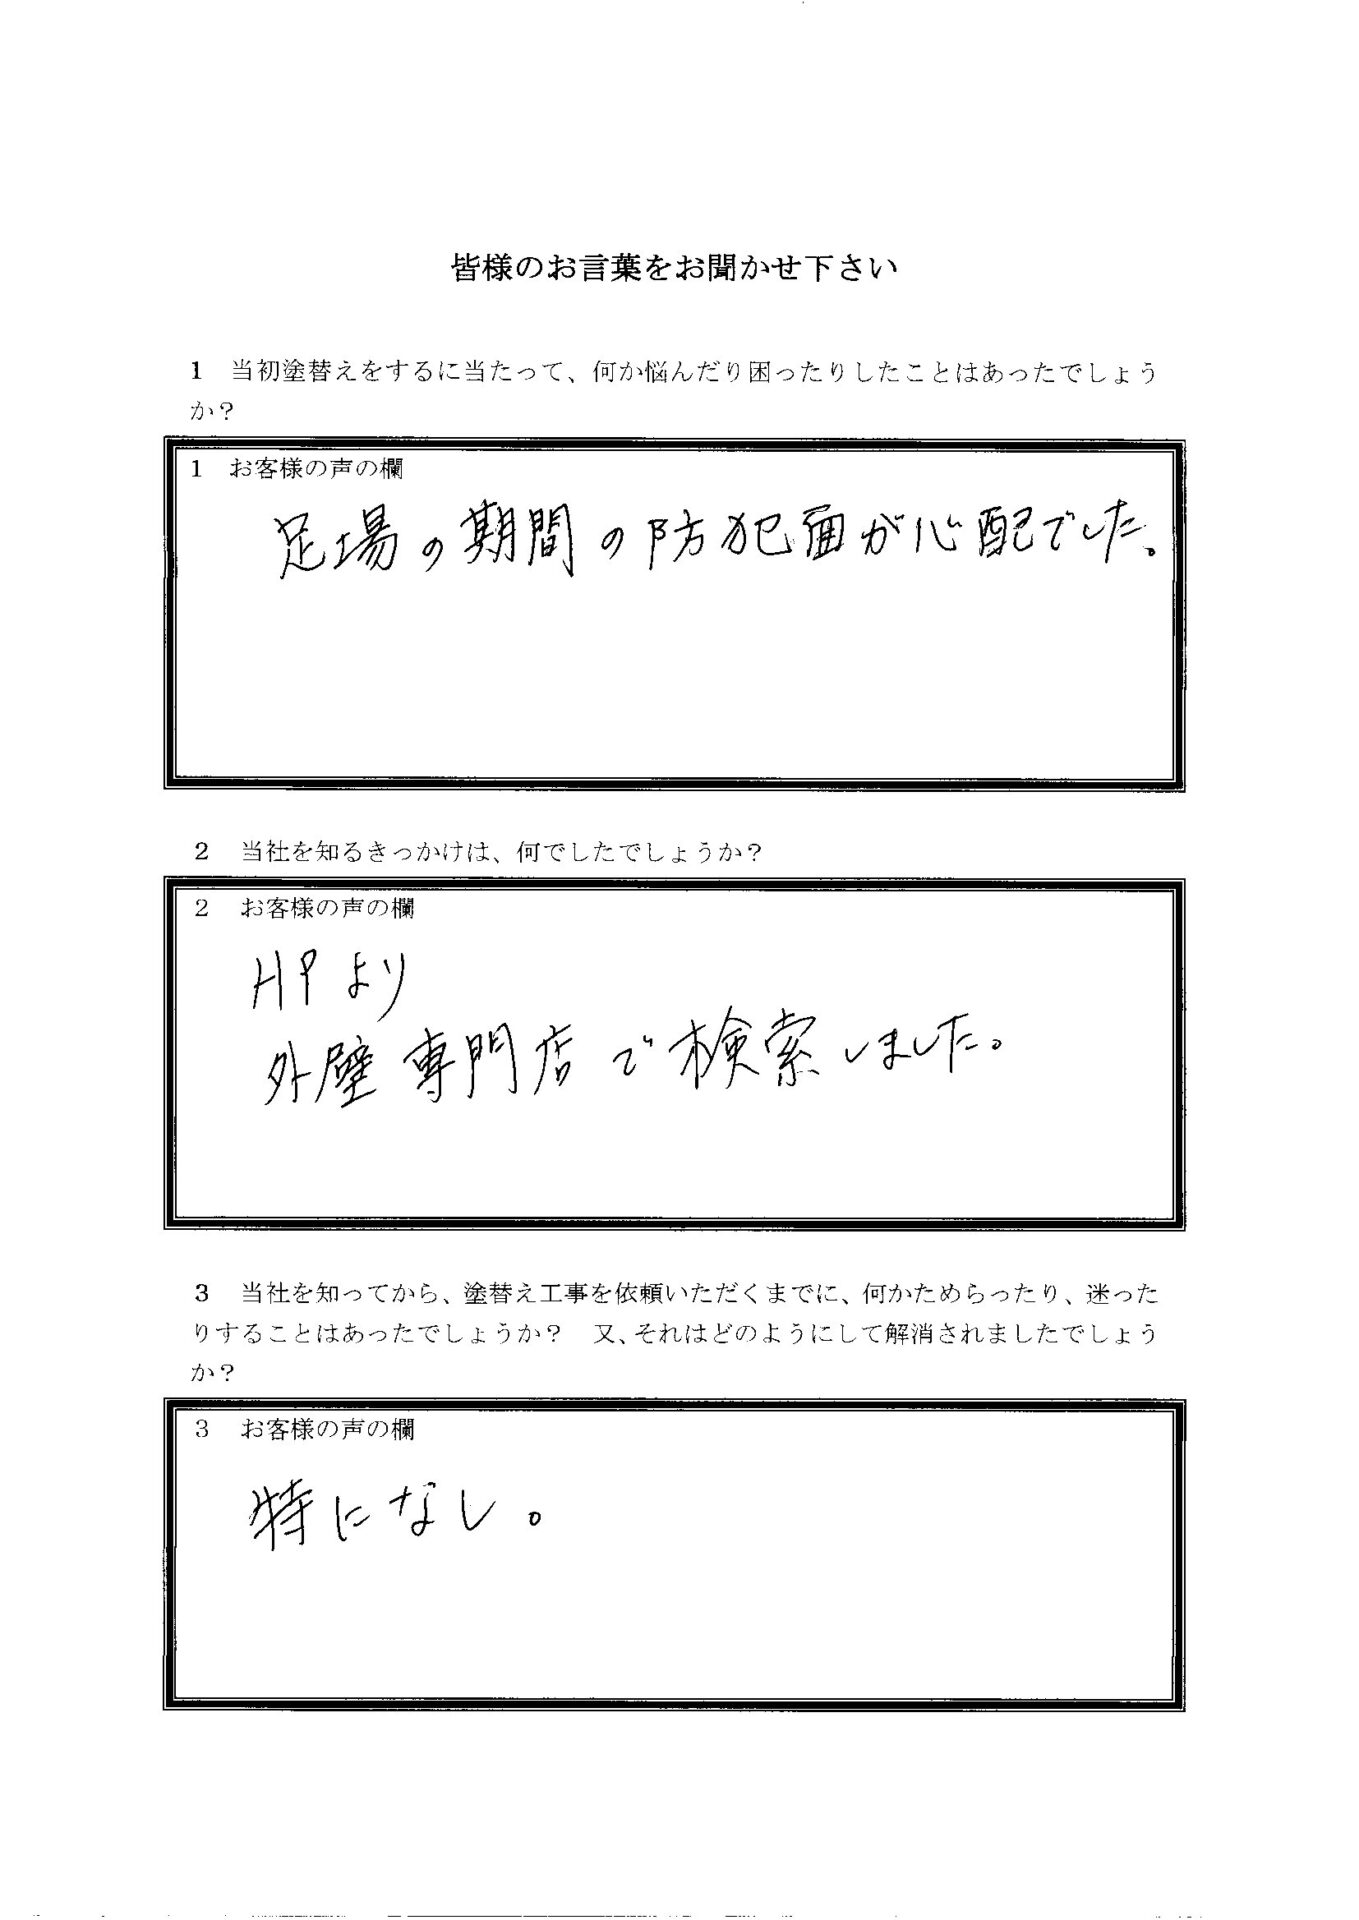 皆様のお言葉をお聞かせ下さい
1　当初塗替えをするに当たって、何か悩んだり困ったりしたことはあったでしょう
か？
1　お客様の声の欄
足場の期間の防犯面が心配でした。
2　当社を知るきっかけは、何でしたでしょうか？
2　お客様の声の欄
HPより
外壁専門店で検索しました。
3　当社を知ってから、塗替え工事を依頼いただくまでに、何かためらったり、迷った
りすることはあったでしょうか？　又、それはどのようにして解消されましたでしょう
か？
3　お客様の声の欄
特になし。